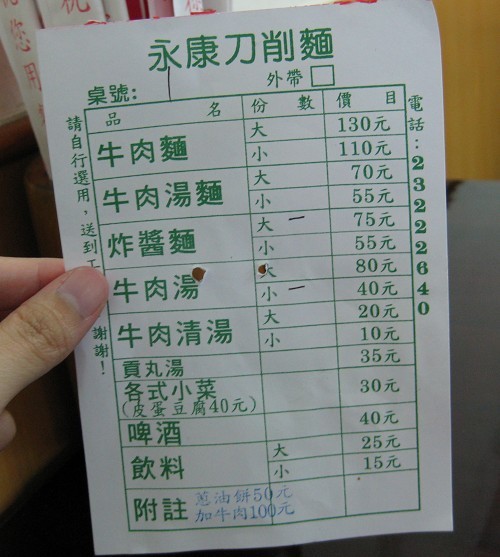 永康刀削麵
桌號: 外帶
品名 份數 價目
牛肉麵 大 130元
小 110元
牛肉湯麵 大 70元
小 55元
炸醬麵 大 一 75元
小 55元
牛肉湯 大 80元
小 一 40元
牛肉清湯 大 20元
小 10元
貢丸湯 35元
各式小菜 30元
(皮蛋豆腐40元)
啤酒 40元
飲料 大 25元
小 15元
附註 蔥油餅50元
加牛肉100元
請自行選用，送到
謝謝！
電話：23222640
您用
祝